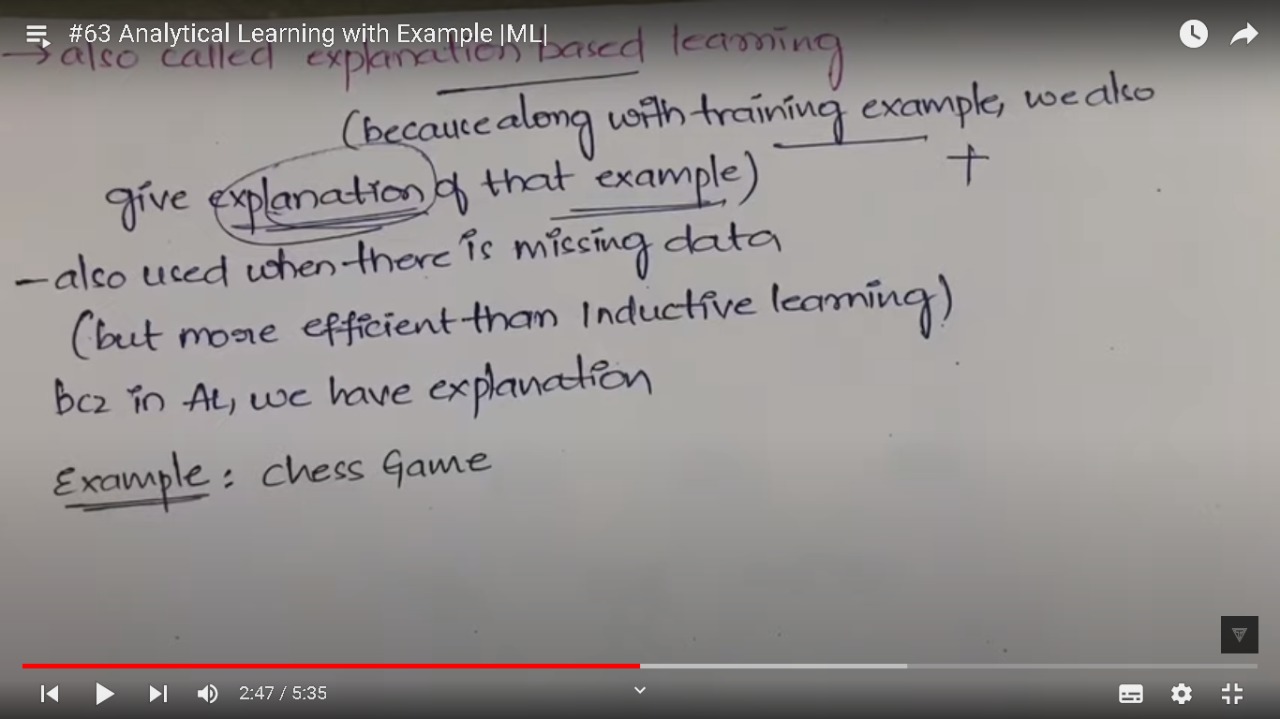 #63 Analytical Learning with Example |ML|
→ also called explanation based learning
(because along with training example, we also
+
give explanation of that example)
- also used when there is missing data
(but more efficient than Inductive learning)
bcz in AL, we have explanation
Example : Chess Game
2:47 / 5:35